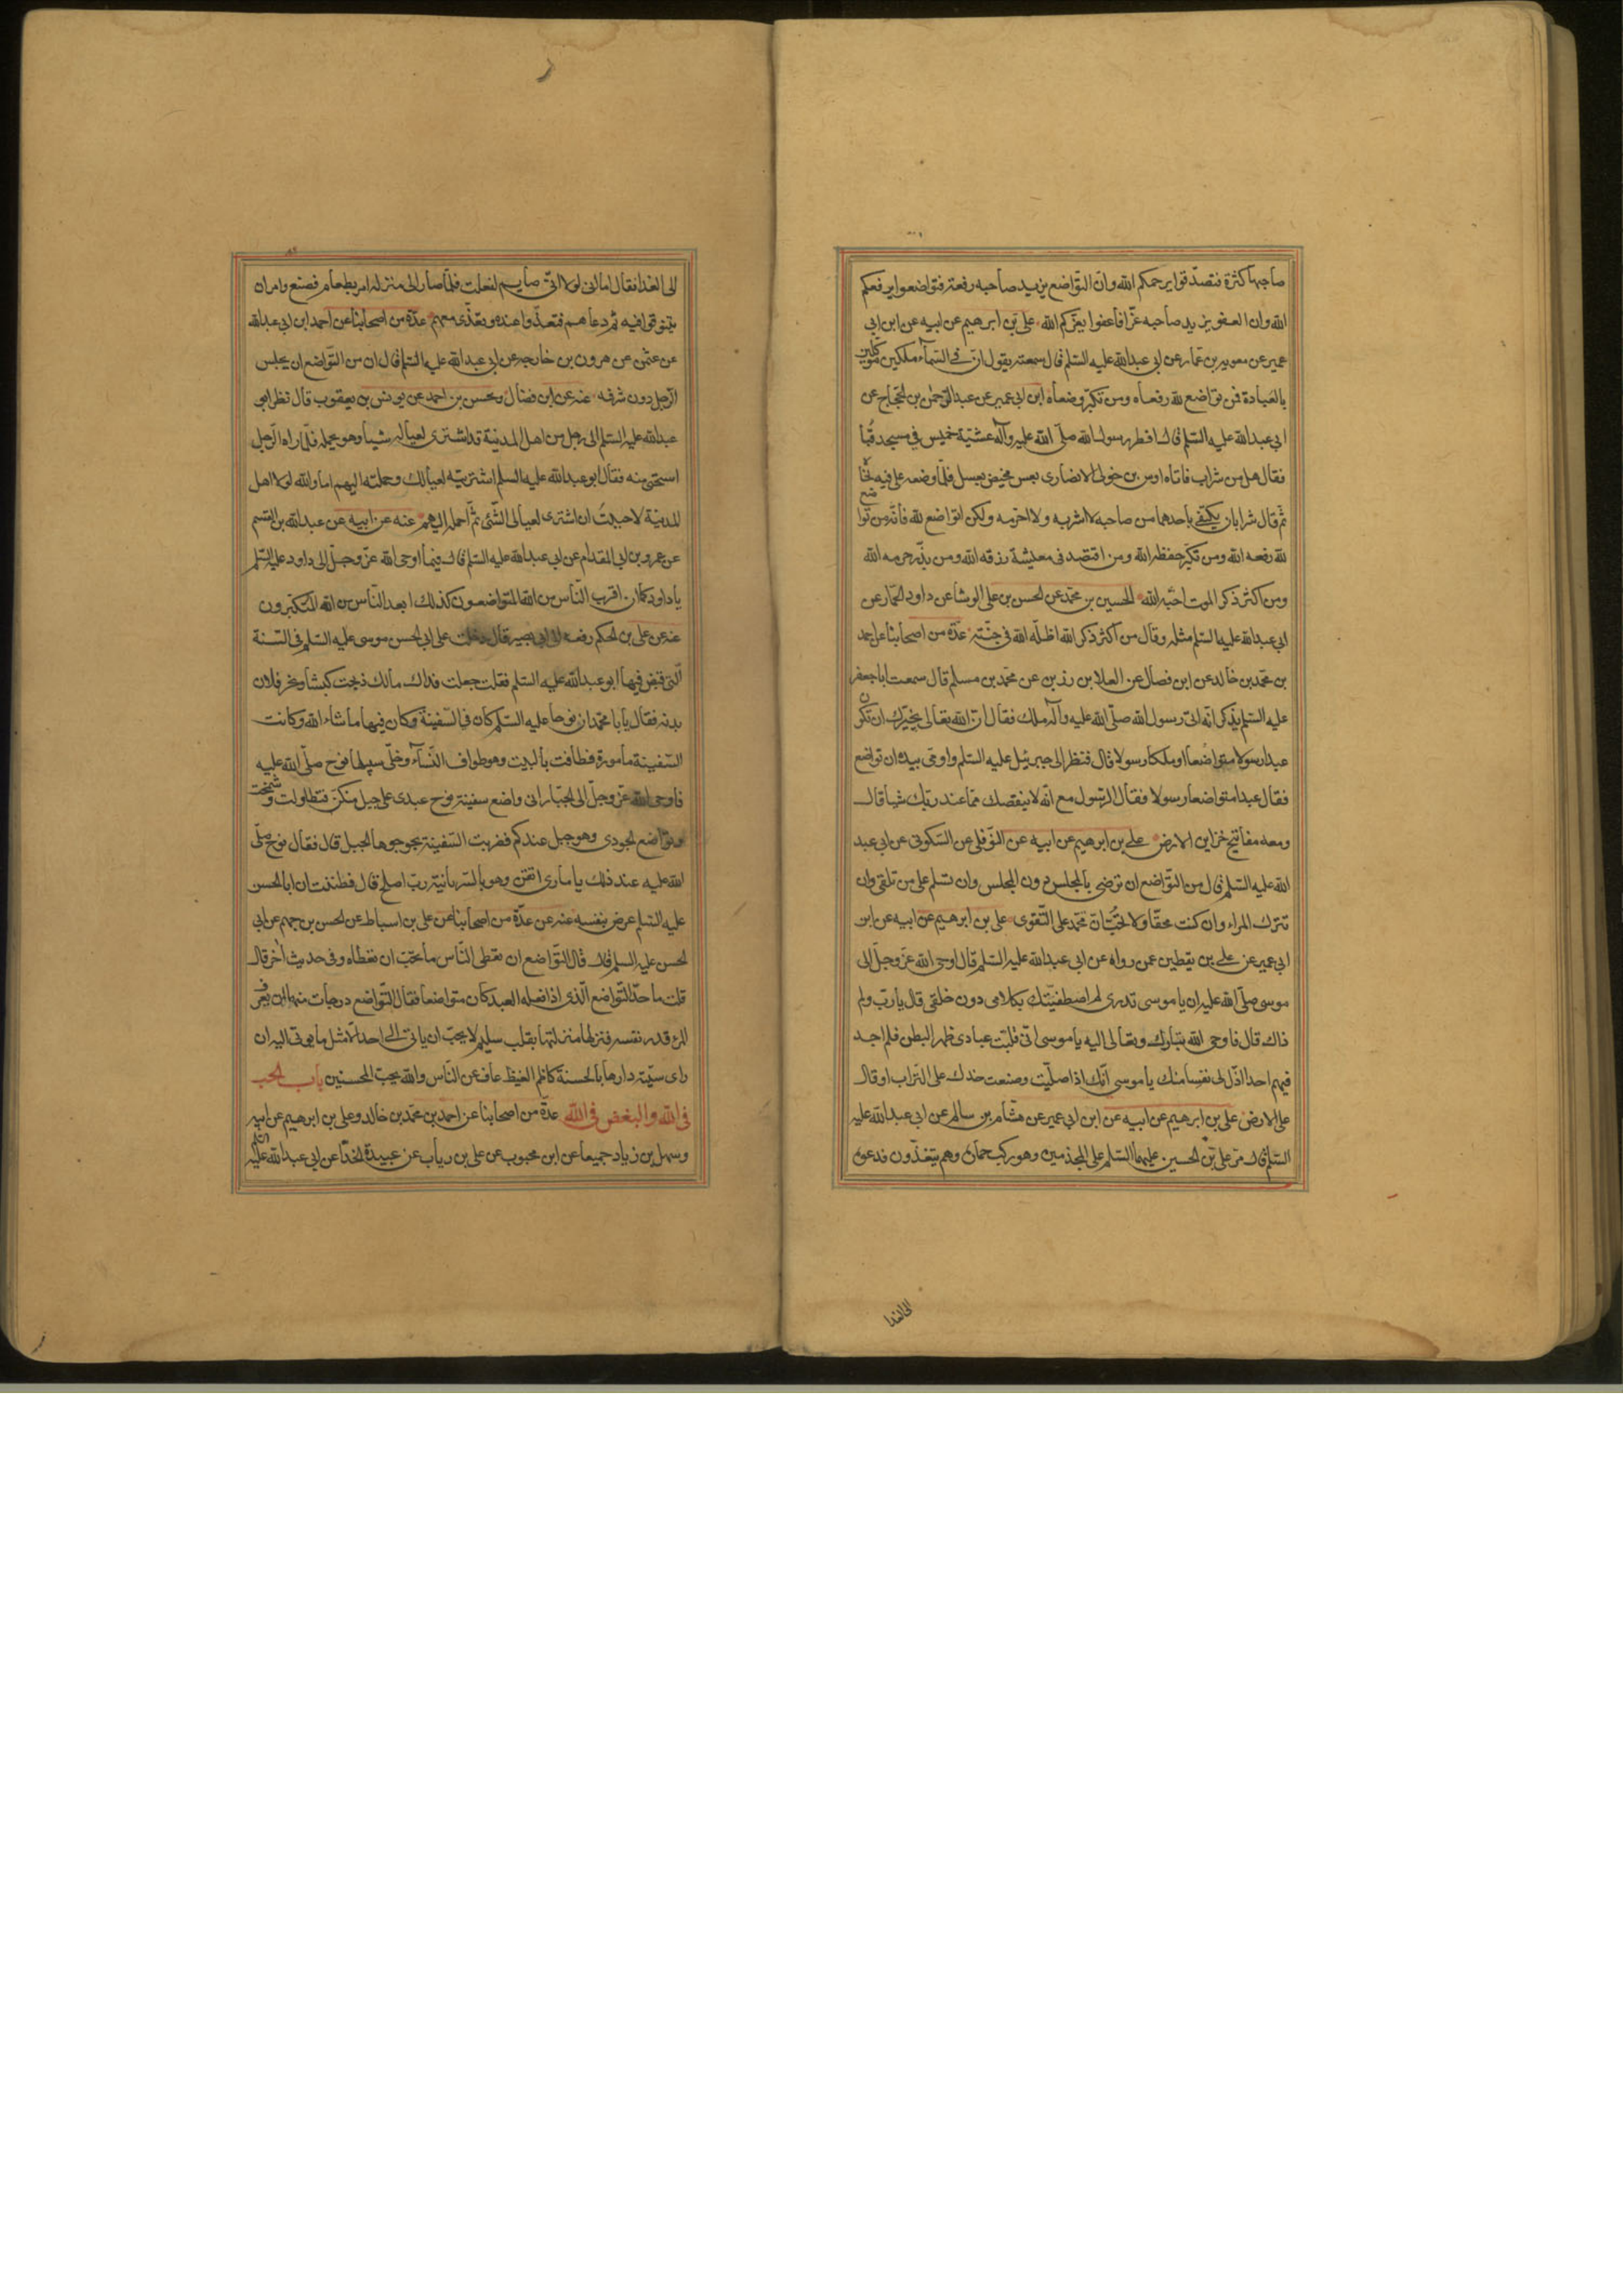 صاحبها كثرة فتصدقوا يرحمكم الله وان التواضع يزيد صاحبه رفعة فتواضعوا يرفعكم
الله وان العفو يزيد صاحبه عزا فاعفوا يعزكم الله علي بن ابرهيم عن ابيه عن ابن ابي
عمير عن معويه بن عمار عن ابي عبد الله عليه السلم قال سمعته يقول ان في السماء ملكين موكلين
بالعبادة فمن تواضع لله رفعاه ومن تكبر وضعاه ابن ابي عمير عن عبد الرحمن بن الحجاج عن
ابي عبد الله عليه السلم قال افطر رسول الله صلى الله عليه وآله عشية خميس في مسجد قبا
فقال هل من شراب فاتاه اوس بن خولى الانصاري بعس مخيض بعسل فلما وضعه على فيه نحاه
ثم قال شرابان يكتفى باحدهما من صاحبه لا اشربه ولا احرمه ولكن اتواضع لله فانه من تواضع
لله رفعه الله ومن تكبر خفظه الله ومن اقتصد فى معيشة رزقه الله ومن بذر حرمه الله
ومن اكثر ذكر الموت احبه الله الحسين بن محمد عن الحسن بن على الوشا عن داود الحمار عن
ابي عبد الله عليه السلم مثله وقال من اكثر ذكر الله اظله الله فى جنته عدة من اصحابنا عن احمد
بن محمد بن خالد عن ابن فضال عن العلا بن رزين عن محمد بن مسلم قال سمعت ابا جعفر
عليه السلم يذكر انه اتى رسول الله صلى الله عليه وآله ملك فقال ان الله تعالى يخيرك ان تكون
عبدا رسولا متواضعا او ملكا رسولا قال فنظر الى جبرئيل عليه السلم واومى بيده ان تواضع
فقال عبدا متواضعا رسولا فقال الرسول مع انه لا ينقصك مما عند ربك شيا قال
ومعه مفاتيح خزاين الارض علي بن ابرهيم عن ابيه عن النوفلى عن السكونى عن ابى عبد
الله عليه السلم قال من التواضع ان ترضى بالمجلس دون المجلس وان تسلم على من تلقى وان
تترك المراء وان كنت محقا ولا تحب ان تحمد على التقوى على بن ابرهيم عن ابيه عن ابن
ابي عمير عن على بن يقطين عمن رواه عن ابى عبد الله عليه السلم قال اوحى الله عز وجل الى
موسى صلى الله عليه ان يا موسى تدرى لم اصطفيتك بكلامى دون خلقى قال يا رب ولم
ذاك قال فاوحى الله تبارك وتعالى اليه يا موسى انى قلبت عبادى ظهر البطن فلم اجد
فيهم احدا اذل لى نفسا منك يا موسى انك اذا صليت وضعت خدك على التراب او قال
على الارض على بن ابرهيم عن ابيه عن ابن ابى عمير عن هشام بن سالم عن ابى عبد الله عليه
السلم قال مر على بن الحسين عليهما السلم على المجذمين وهو ركب حماره وهم يتغذون فدعوه
الى الغدا
الى الغدا فقال اما انى لولا انى صايم لفعلت فلما صار الى منزله امر بطعام فصنع وامر ان
يتنوقوا فيه ثم دعاهم فتغدوا عنده وتغدى معهم عدة من اصحابنا عن احمد ابن ابى عبد الله
عن عثمن عن هرون بن خارجه عن ابى عبد الله عليه السلم قال ان من التواضع ان يجلس
الرجل دون شرفه عنه عن ابن فضال ومحسن بن احمد عن يونس بن يعقوب قال نظر ابو
عبد الله عليه السلم الى رجل من اهل المدينة قد اشترى لعياله شيئا وهو يحمله فلما راه الرجل
استحيى منه فقال ابو عبد الله عليه السلم اشتريته لعيالك وحملته اليهم اما والله لولا اهل
المدينة لاحببت ان اشترى لعيالى الشئ ثم احمله اليهم عنه عن ابيه عن عبد الله بن القسم
عن عمرو بن ابى المقدام عن ابى عبد الله عليه السلم قال فيما اوحى الله عز وجل الى داود عليه السلم
يا داود كما ان اقرب الناس من الله المتواضعون كذلك ابعد الناس من الله المتكبرون
عنه عن على بن الحكم رفعه الى ابى بصير قال دخلت على ابى الحسن موسى عليه السلم فى السنة
التى قبض فيها ابو عبد الله عليه السلم فقلت جعلت فداك مالك ذبحت كبشا ونحر فلان
بدنه فقال يا با محمد ان نوحا عليه السلم كان فى السفينة وكان فيها ما شاء الله وكانت
السفينة مامورة فطافت بالبيت وهو طواف النساء وخلى سبيلها نوح صلى الله عليه
فاوحى الله عز وجل الى الجبال انى واضع سفينة نوح عبدى على جبل منكن فتطاولت وشمخت
وتواضع الجودى وهو جبل عندكم فضربت السفينة بجوجوها الجبل قال فقال نوح صلى
الله عليه عند ذلك يا مارى اتقن وهو بالسريانية رب اصلح قال فظننت ان ابا الحسن
عليه السلم عرض بنفسه عنه عن عدة من اصحابنا عن على بن اسباط عن الحسن بن جهم عن ابى
الحسن عليه السلم قال قال التواضع ان تعطى الناس ما تحب ان تعطاه وفى حديث اخر قال
قلت ما حد التواضع الذى اذا فعله العبد كان متواضعا فقال التواضع درجات منها ان يعرف
المرء قدر نفسه فينزلها منزلتها بقلب سليم لا يحب ان ياتى الى احد الا مثل ما يوتى اليه ان
راى سيئة دارها بالحسنة كاظم الغيظ عاف عن الناس والله يحب المحسنين باب الحب
فى الله والبغض فى الله عدة من اصحابنا عن احمد بن محمد بن خالد وعلى بن ابرهيم عن ابيه
وسهل بن زياد جميعا عن ابن محبوب عن على بن رياب عن عبيدة الحذا عن ابى عبد الله عليه السلم